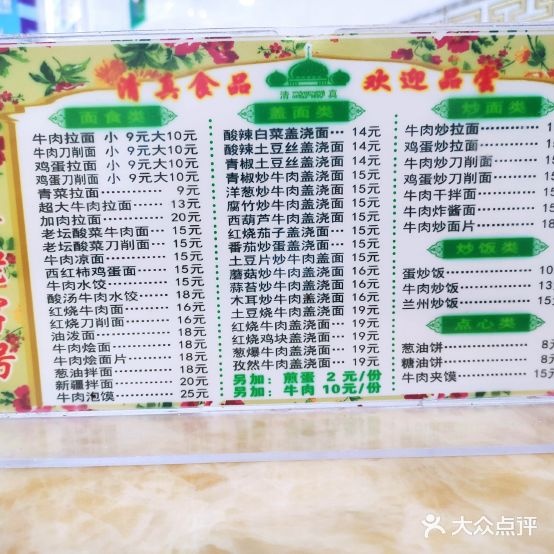 清真食品
清 真
欢迎品尝
面食类
牛肉拉面 小 9元大10元
牛肉刀削面 小 9元大10元
鸡蛋拉面 小 9元大10元
鸡蛋刀削面 小 9元大10元
青菜拉面 9元
超大牛肉拉面 13元
加肉拉面 20元
老坛酸菜牛肉面 15元
老坛酸菜刀削面 15元
牛肉凉面 15元
西红柿鸡蛋面 15元
牛肉水饺 15元
酸汤牛肉水饺 18元
红烧牛肉面 16元
红烧刀削面 16元
油泼面 18元
牛肉烩面 18元
牛肉烩面片 18元
葱油拌面 18元
新疆拌面 20元
牛肉泡馍 25元
盖面类
酸辣白菜盖浇面 14元
酸辣土豆丝盖浇面 14元
青椒土豆丝盖浇面 14元
青椒炒牛肉盖浇面 15元
洋葱炒牛肉盖浇面 15元
腐竹炒牛肉盖浇面 15元
西葫芦牛肉盖浇面 15元
红烧茄子盖浇面 15元
番茄炒蛋盖浇面 15元
土豆片炒牛肉盖浇面 16元
蘑菇炒牛肉盖浇面 16元
蒜苔炒牛肉盖浇面 16元
木耳炒牛肉盖浇面 16元
土豆烧牛肉盖浇面 19元
红烧牛肉盖浇面 19元
红烧鸡块盖浇面 19元
葱爆牛肉盖浇面 19元
孜然牛肉盖浇面 19元
另加：煎蛋 2 元/份
另加：牛肉 10元/份
炒面类
牛肉炒拉面
鸡蛋炒拉面
牛肉炒刀削面
鸡蛋炒刀削面
牛肉干拌面
牛肉炸酱面
牛肉炒面片
炒饭类
蛋炒饭 10
牛肉炒饭 13
兰州炒饭 15
点心类
葱油饼 8元
糖油饼 8元
牛肉夹馍 15元
大众点评